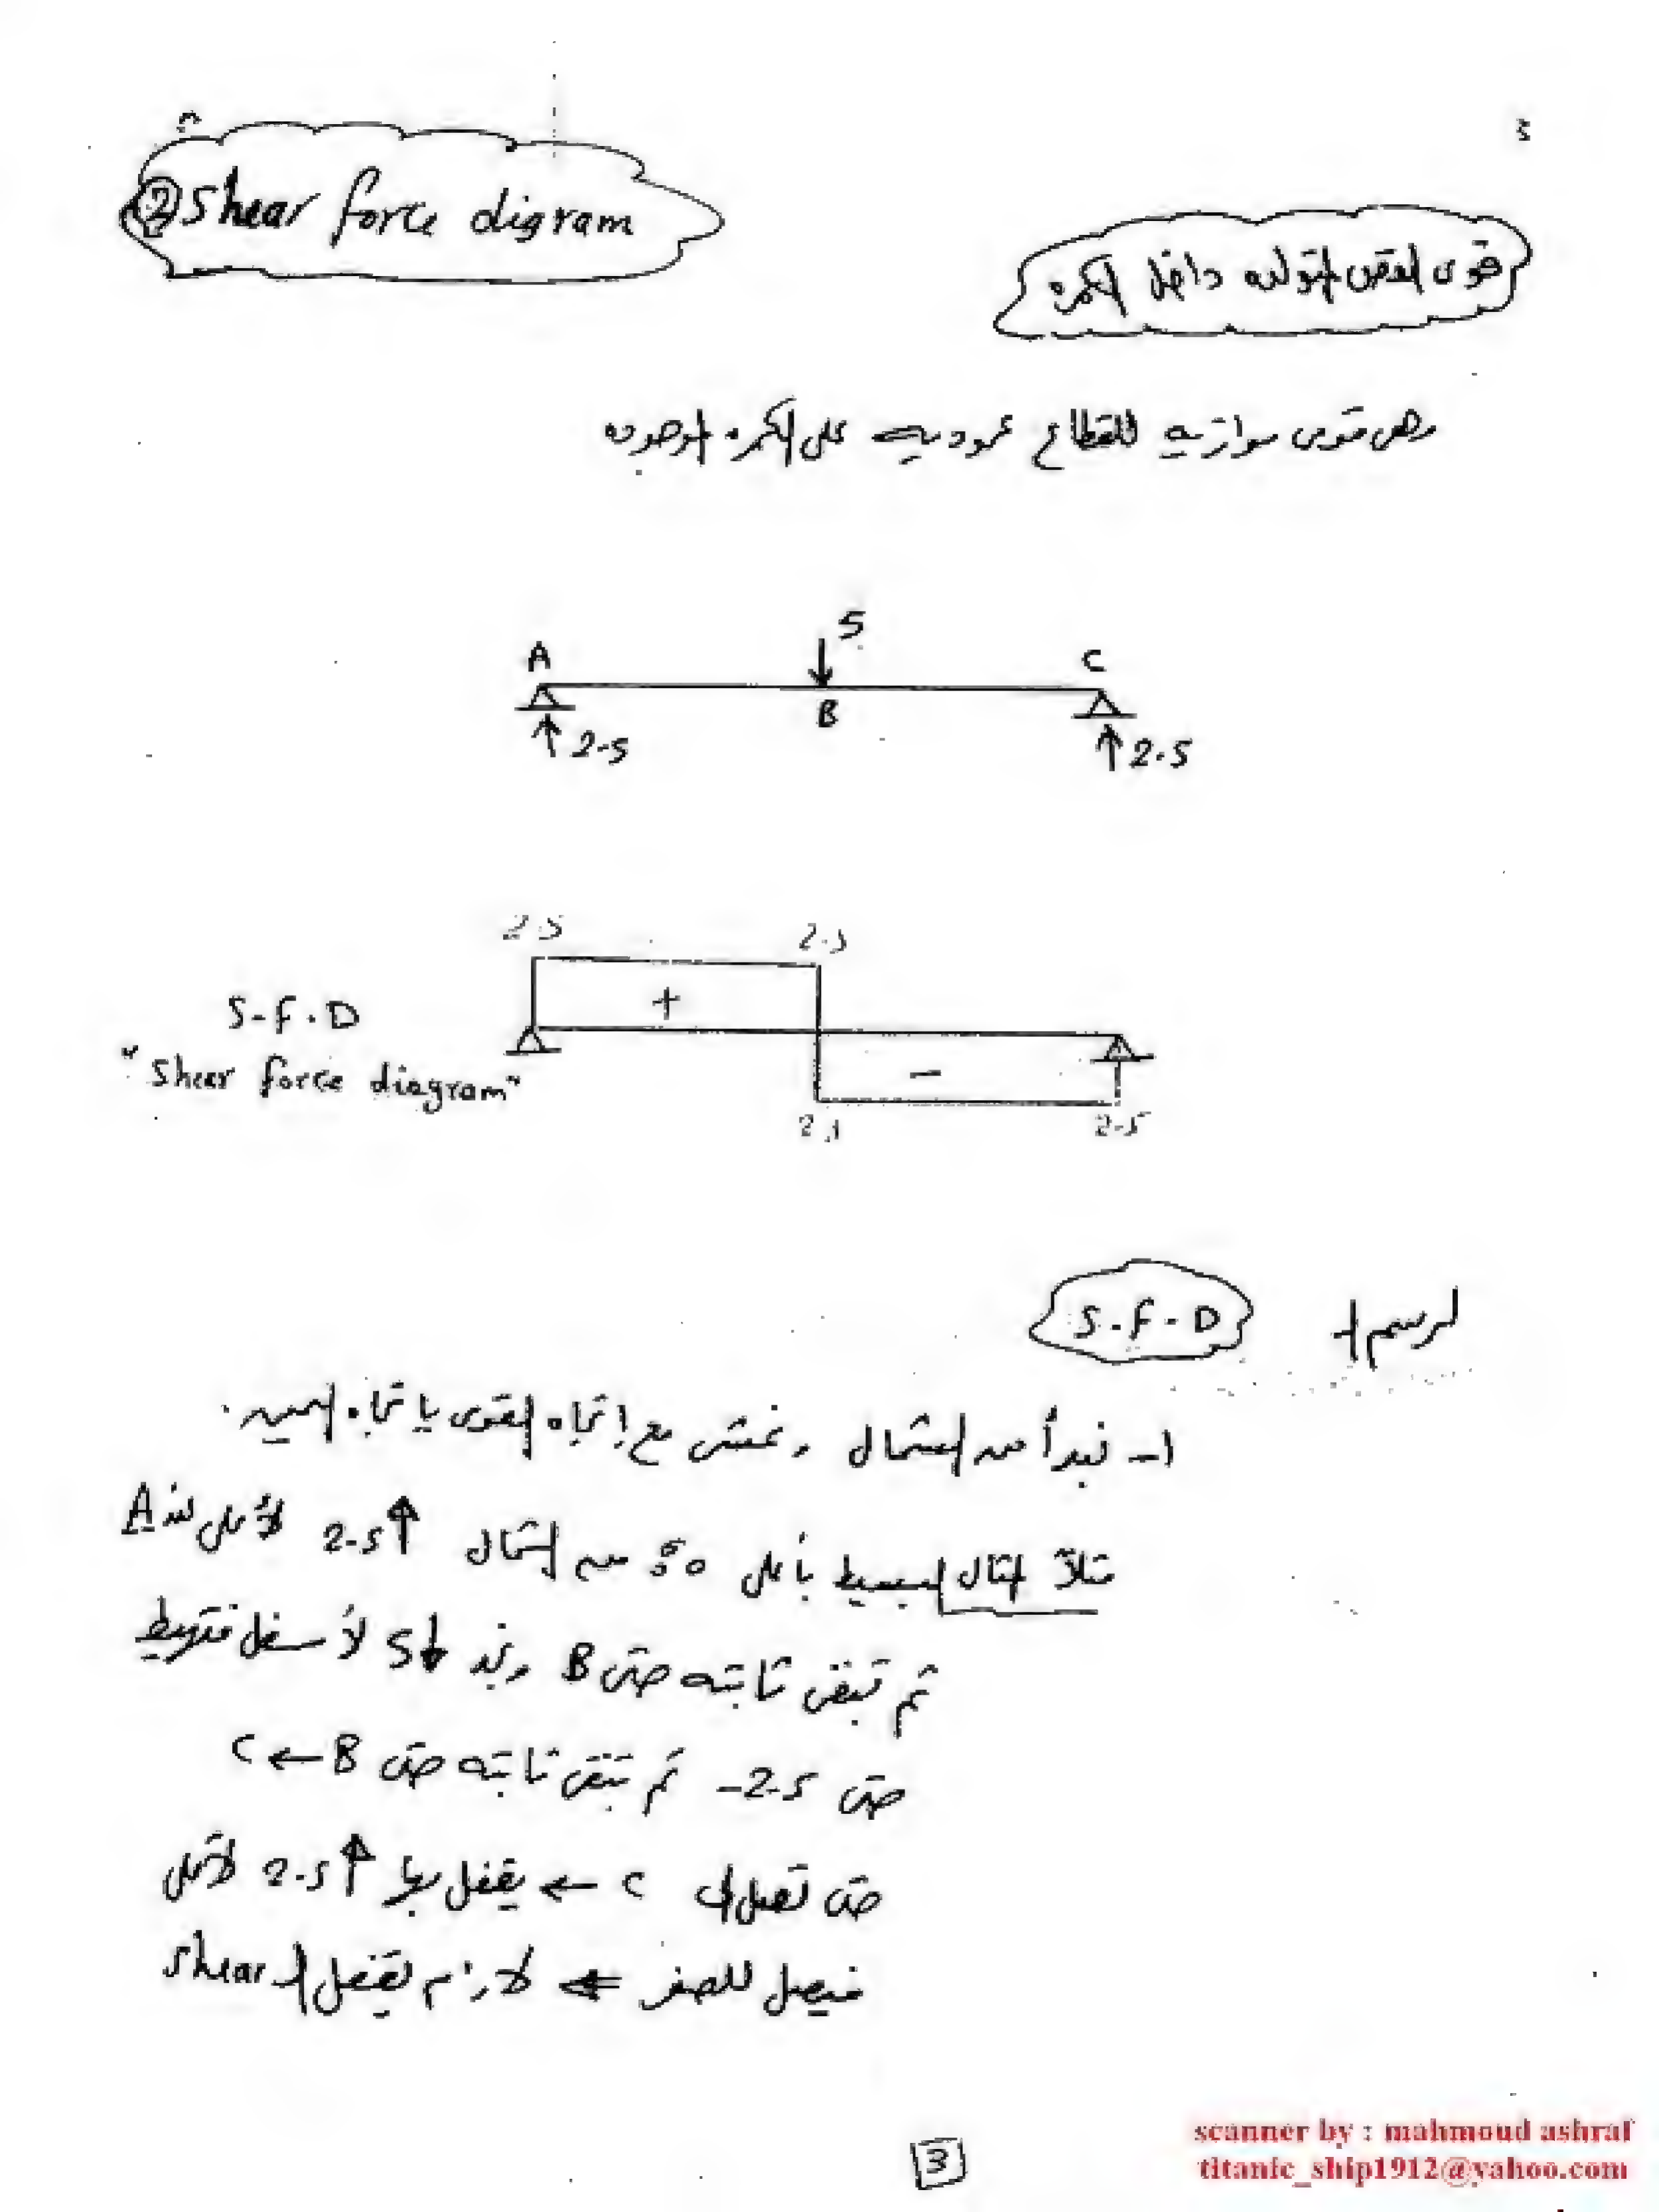 ② Shear force digram
3
قوى القص المتولده داخل الكمره
وهى قوى موازيه للقطاع عموديه على الكمره الموجوده
5
A
C
B
2.5
2.5
2.5
2.5
+
S.F.D
"Shear force diagram"
-
2.5
2.5
لرسم الـ S.F.D
١- نبدأ من الشمال ونمشى مع إتجاه القوى باتجاه اليمين.
مثلاً المثال البسيط بأعلى من الشمال ↑2.5 لأعلى عند A
ثم تبقى ثابته حتى B وجد ↓5 لأسفل فتهبط
حتى -2.5 ثم تبقى ثابته حتى B → C
حتى تصل الى C ← يقفل بها ↑2.5 لأعلى
فيصل للصفر ← لازم يقفل الـ Shear
3
scanner by : mahmoud ashraf
titanic_ship1912@yahoo.com